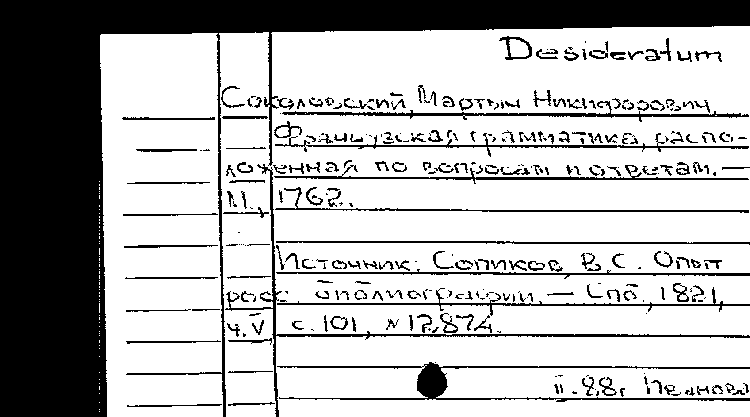 Desideratum
Соколовский, Мартын Никифорович.
Французская грамматика, распо-
ложенная по вопросам и ответам. —
М., 1762.
Источник: Сопиков, В.С. Опыт
росс. библиографии. — Спб., 1821,
ч. V с. 101, № 12.874.